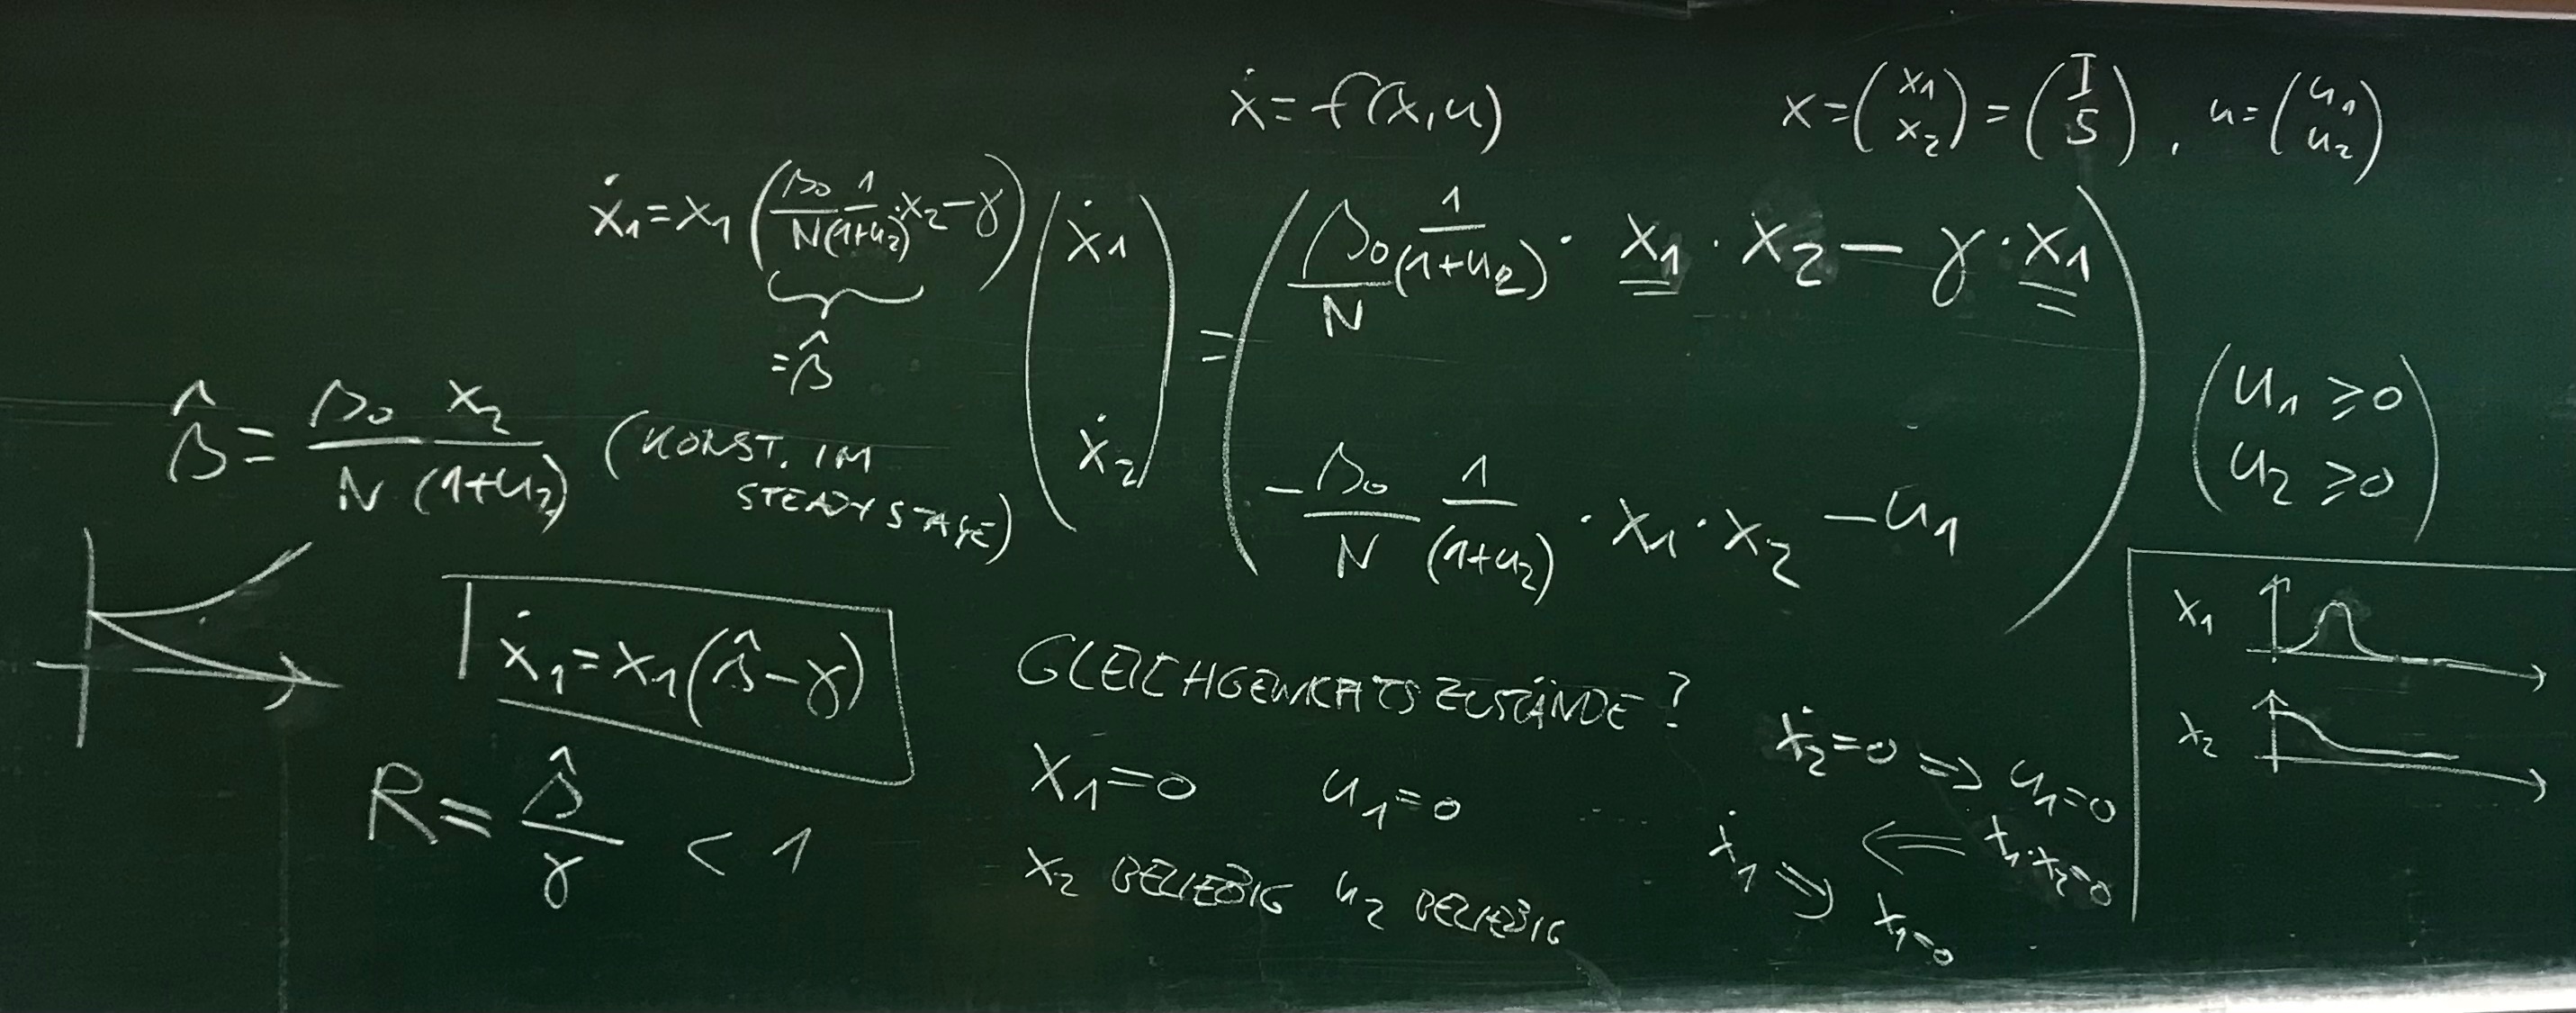 ẋ = f(x,u)
x = (x₁ x₂) = (I S), u = (u₁ u₂)
ẋ₁ = x₁ (β₀/N 1/(1+u₂) · x₂ − γ)
= β̂
(ẋ₁ ẋ₂) = (
β₀/N 1/(1+u₂) · x₁ · x₂ − γ · x₁
− β₀/N 1/(1+u₂) · x₁ · x₂ − u₁
)
(u₁ ⩾ 0
u₂ ⩾ 0)
β̂ = β₀ x₂ / N · (1+u₂) (KONST. IM
STEADY STATE)
ẋ₁ = x₁(β̂ − γ)
R = β̂/γ < 1
GLEICHGEWICHTSZUSTÄNDE?
x₁ = 0 u₁ = 0
x₂ BELIEBIG u₂ BELIEBIG
ẋ₂ = 0 ⇒ u₁ = 0
⇐ x₁·x₂ = 0
ẋ₁ ⇒ x₁ = 0
x₁
x₂